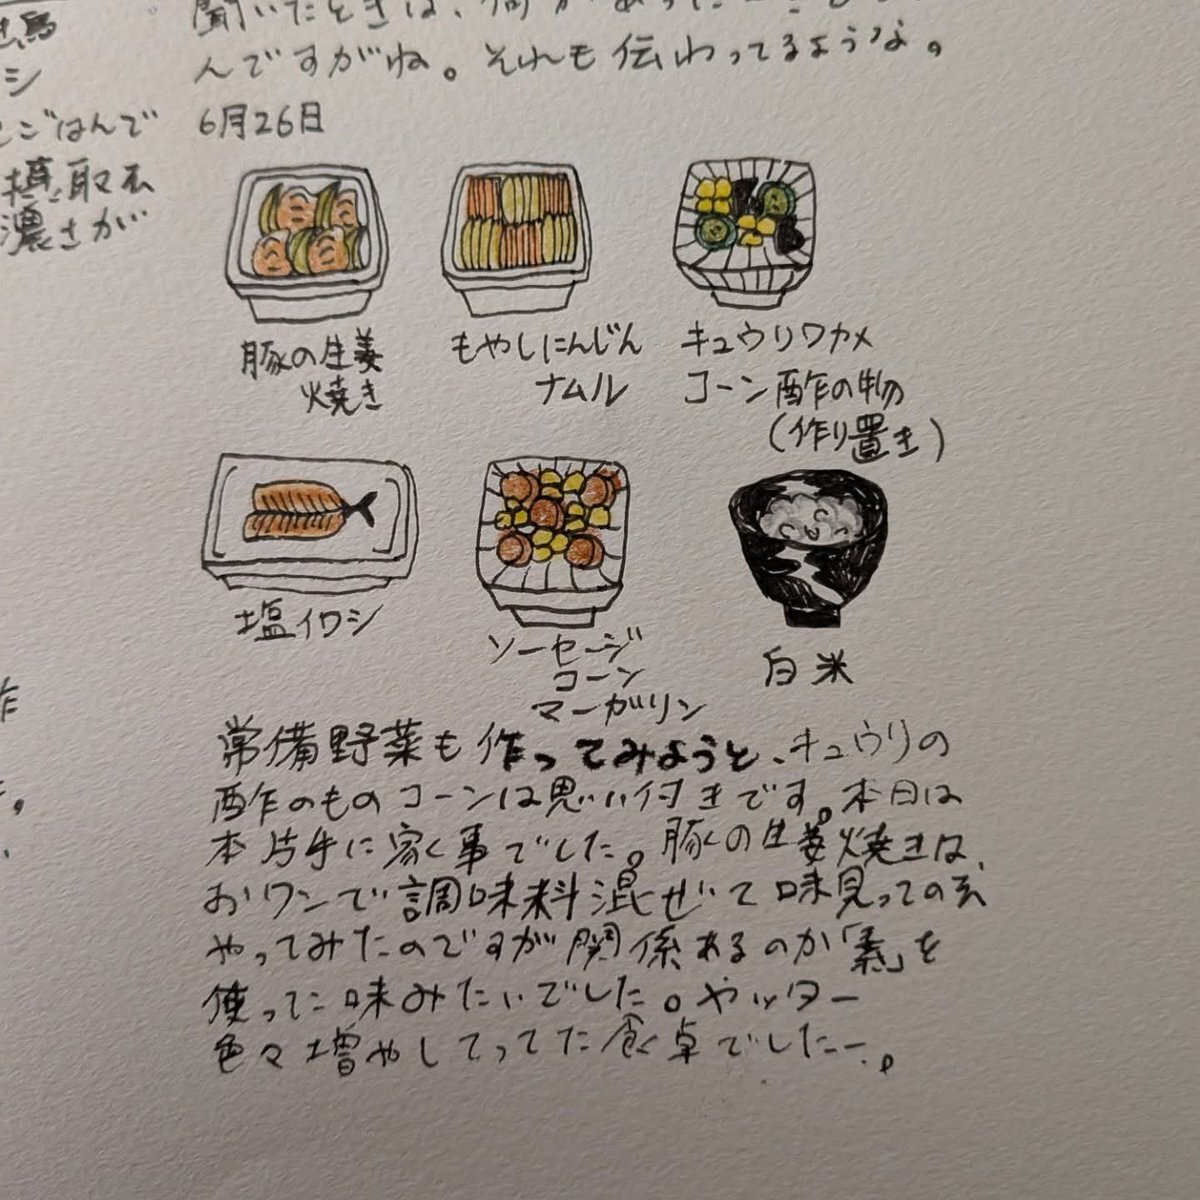 んですがね。それも伝わってるような。
シ
ごはんで
摂取
濃さが
6月26日
豚の生姜
焼き
もやしにんじん
ナムル
キュウリワカメ
コーン酢の物
(作り置き)
塩イワシ
ソーセージ
コーン
マーガリン
白米
常備野菜も作ってみようと、キュウリの
酢のものコーンは思い付きです。本日は
本片手に家事でした。豚の生姜焼きは、
おワンで調味料混ぜて味見っての
やってみたのですが関係あるのか「素」を
使った味みたいでした。ヤッター
色々増やしてってた食卓でしたー。